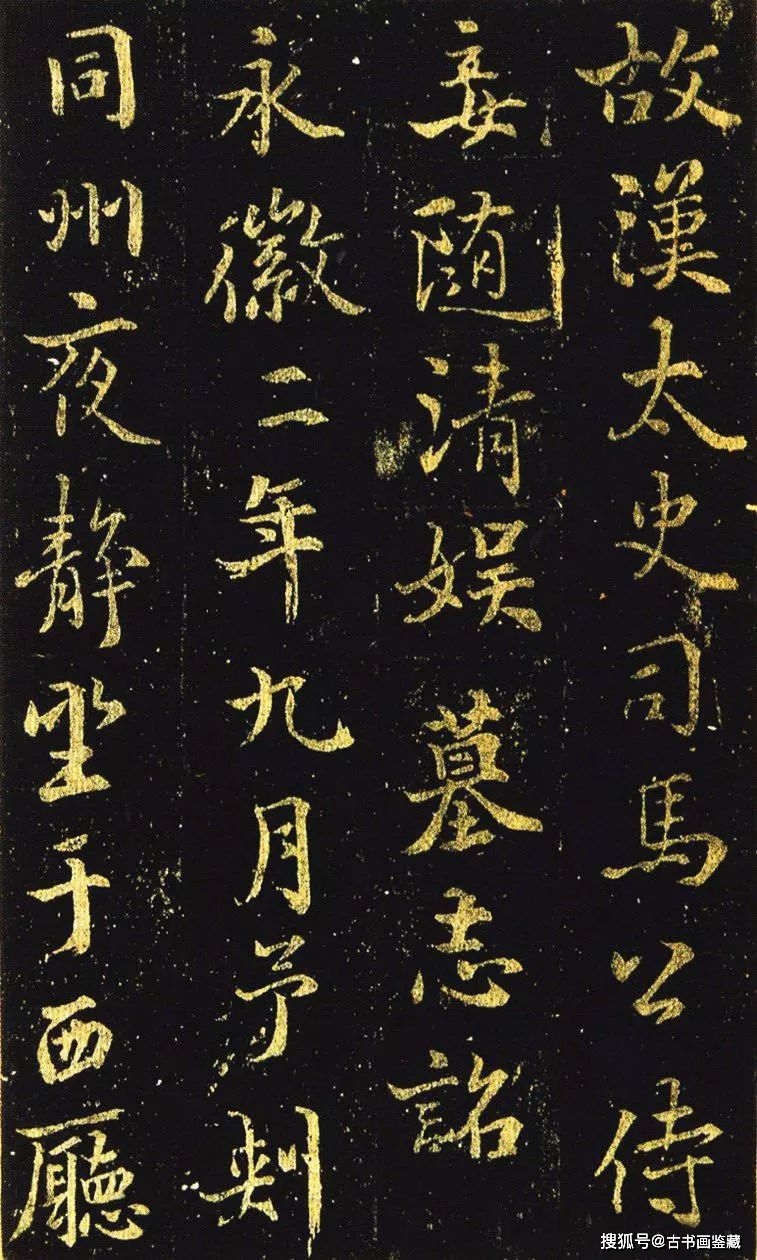 故漢太史司馬公侍
妾随清娱墓志銘
永徽二年九月予刺
同州夜静坐于西廳
搜狐号@古书画鉴藏